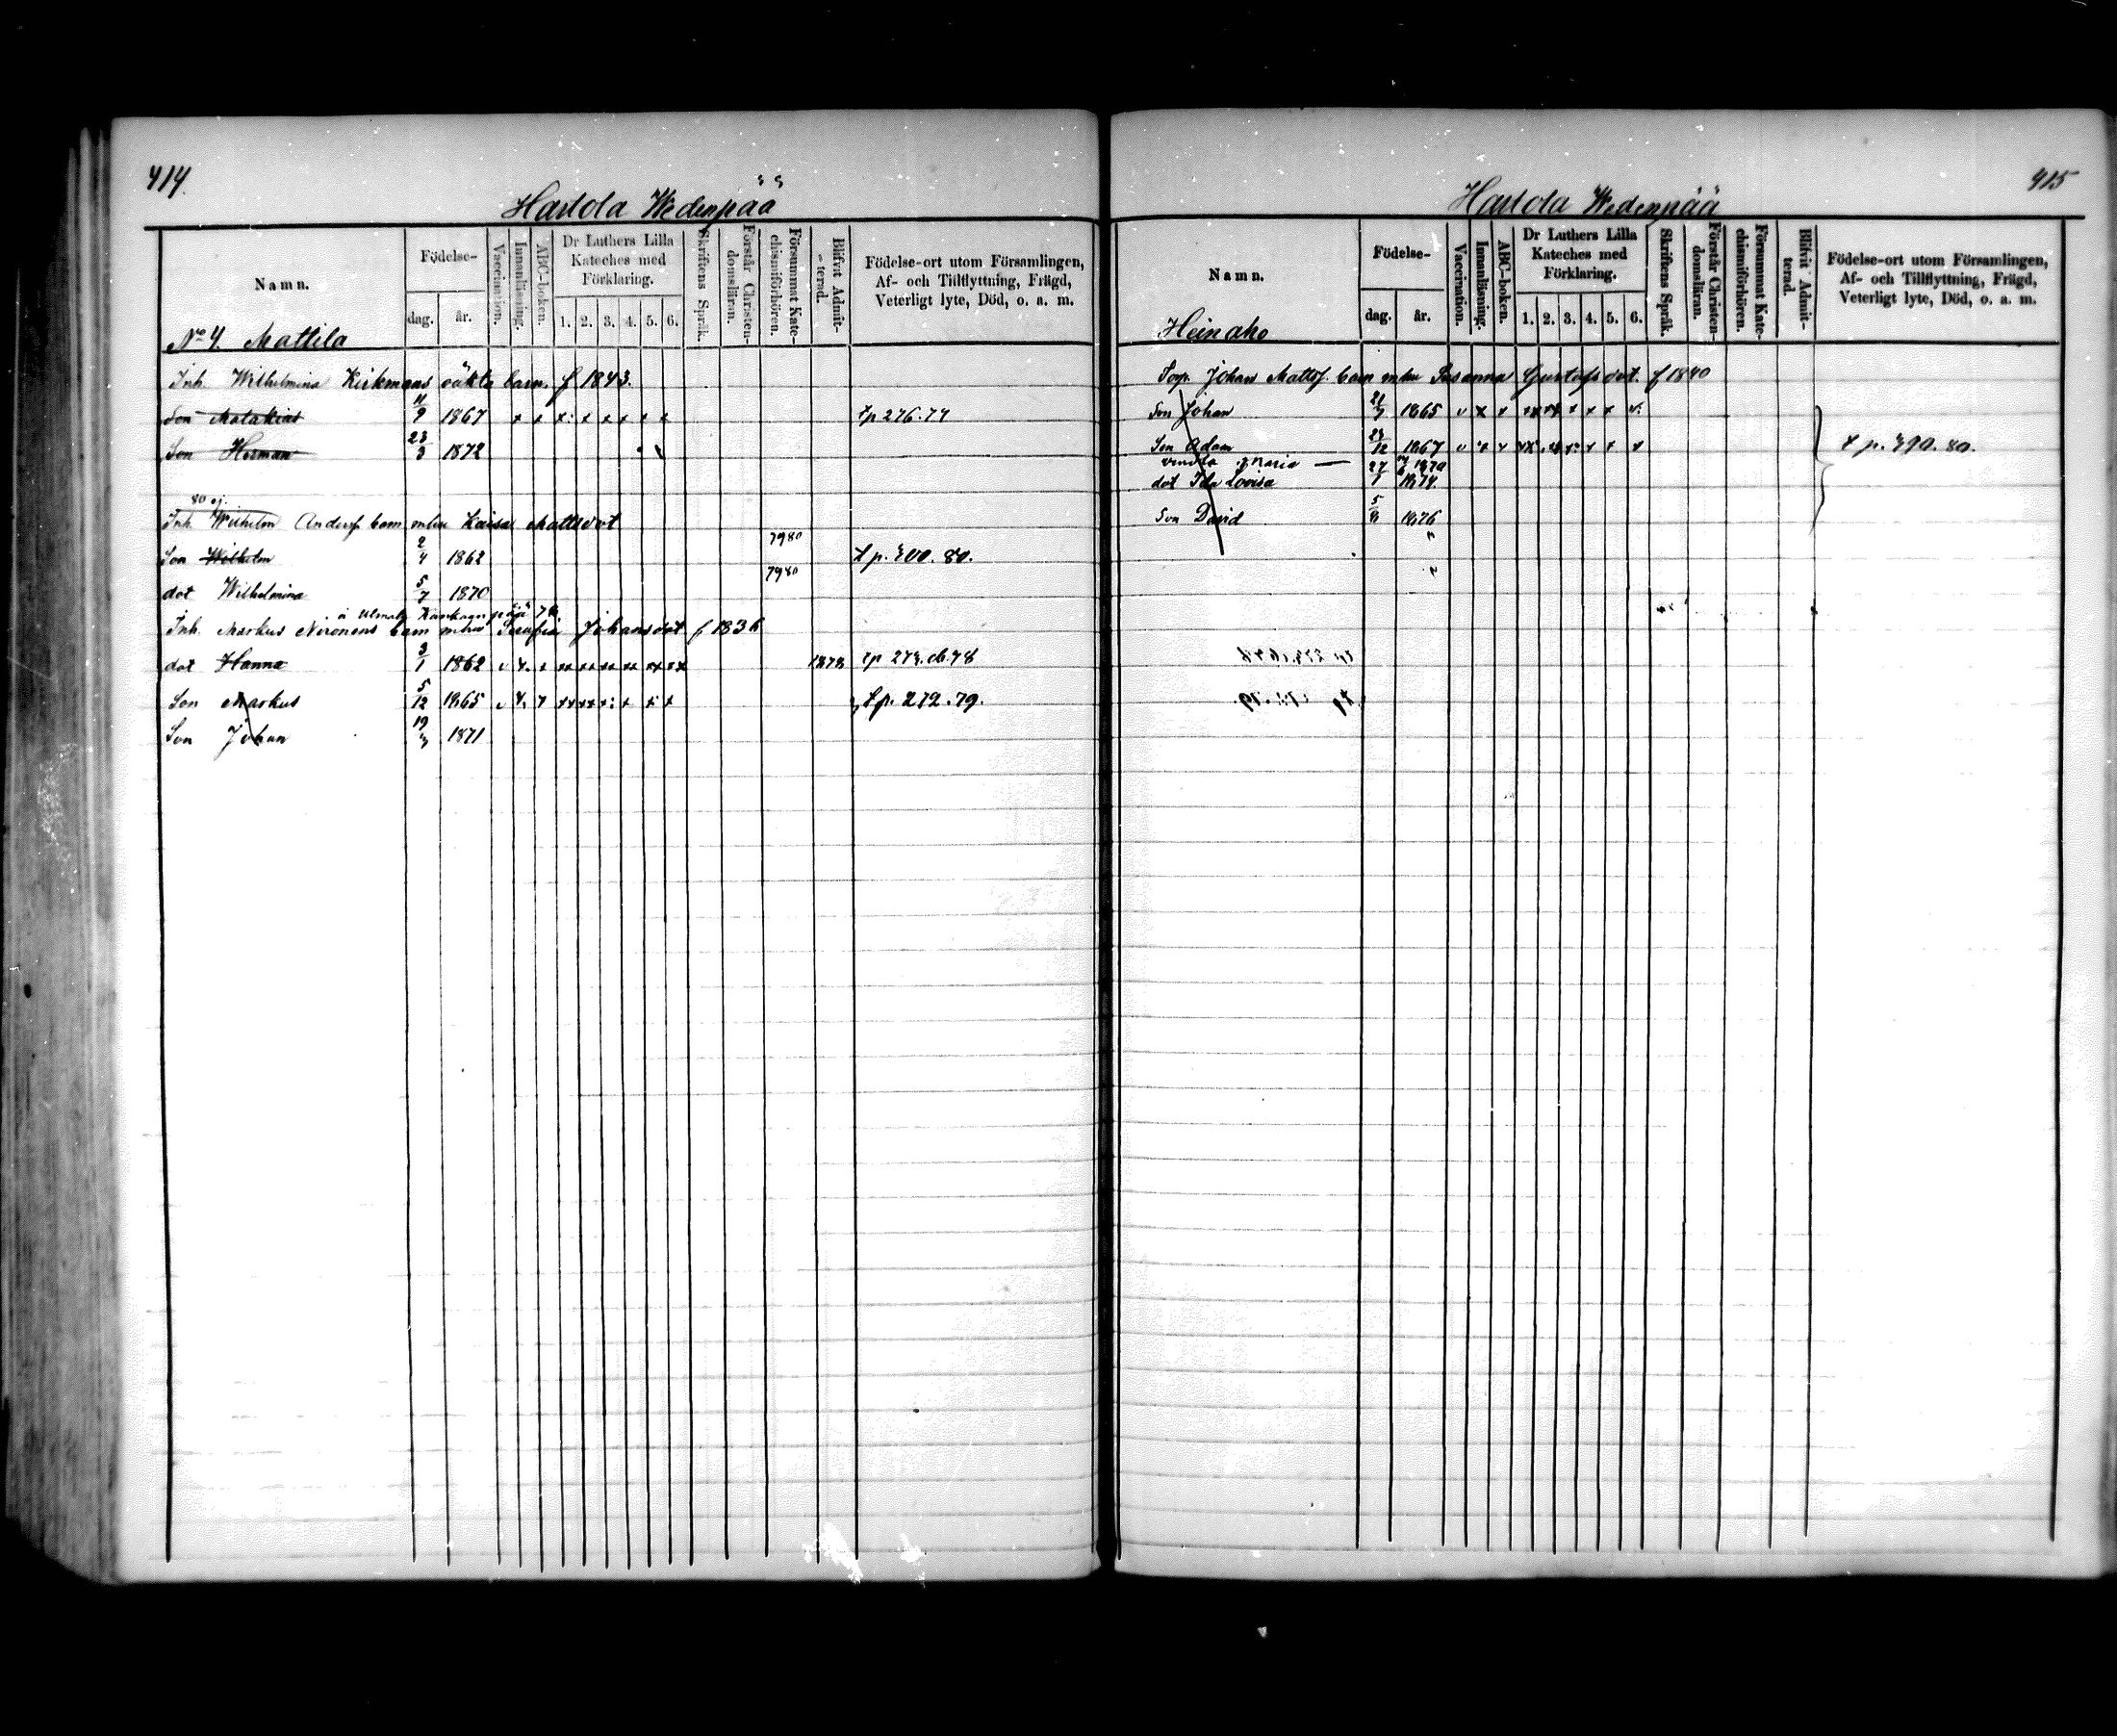 414.
Hartola Wedenpää
Namn.
Födelse-
dag.
år.
Vaccination.
Innanläsning.
ABC-boken.
Dr Luthers Lilla
Kateches med
Förklaring.
1. 2. 3. 4. 5. 6.
Skriftens Språk.
Förstår Christen-
domsläran.
Försummat Kate-
chismiförhören.
Blifvit Admit-
terad.
Födelse-ort utom Församlingen,
Af- och Tillflyttning, Frägd,
Veterligt lyte, Död, o. a. m.
No 4. Mattila
Inh. Wilhelmina Kirkmans oäkta barn. f 1843.
Son Malakias 11/9 1867 tp 276.77
Son Herman 23/3 1872
80 ej.
Inh. Wilhelm Andersf. barn mhu Kaisa Mattsdot
Son Wilhelm 2/4 1862 7980 tp. 300. 80.
dot Wilhelmina 5/7 1870 7980
Inh. Markus Nironens barn mhu Serafia Johansdot f 1836
dot Hanna 3/1 1862 1878 tp 273.78
Son Markus 5/12 1865 tp. 272.79.
Son Johan 19/3 1871
415
Hartola Wedenpää
Namn.
Födelse-
dag.
år.
Vaccination.
Innanläsning.
ABC-boken.
Dr Luthers Lilla
Kateches med
Förklaring.
1. 2. 3. 4. 5. 6.
Skriftens Språk.
Förstår Christen-
domsläran.
Försummat Kate-
chismiförhören.
Blifvit Admit-
terad.
Födelse-ort utom Församlingen,
Af- och Tillflyttning, Frägd,
Veterligt lyte, Död, o. a. m.
Heinaho
Torp. Johan Mattsf. barn mhu Susanna Gustafsdot. f 1840
Son Johan 1865
Son Adam 1867 tp. 390. 80.
Maria 1870
dot Ida Lovisa 27 1874.
Son David 1876